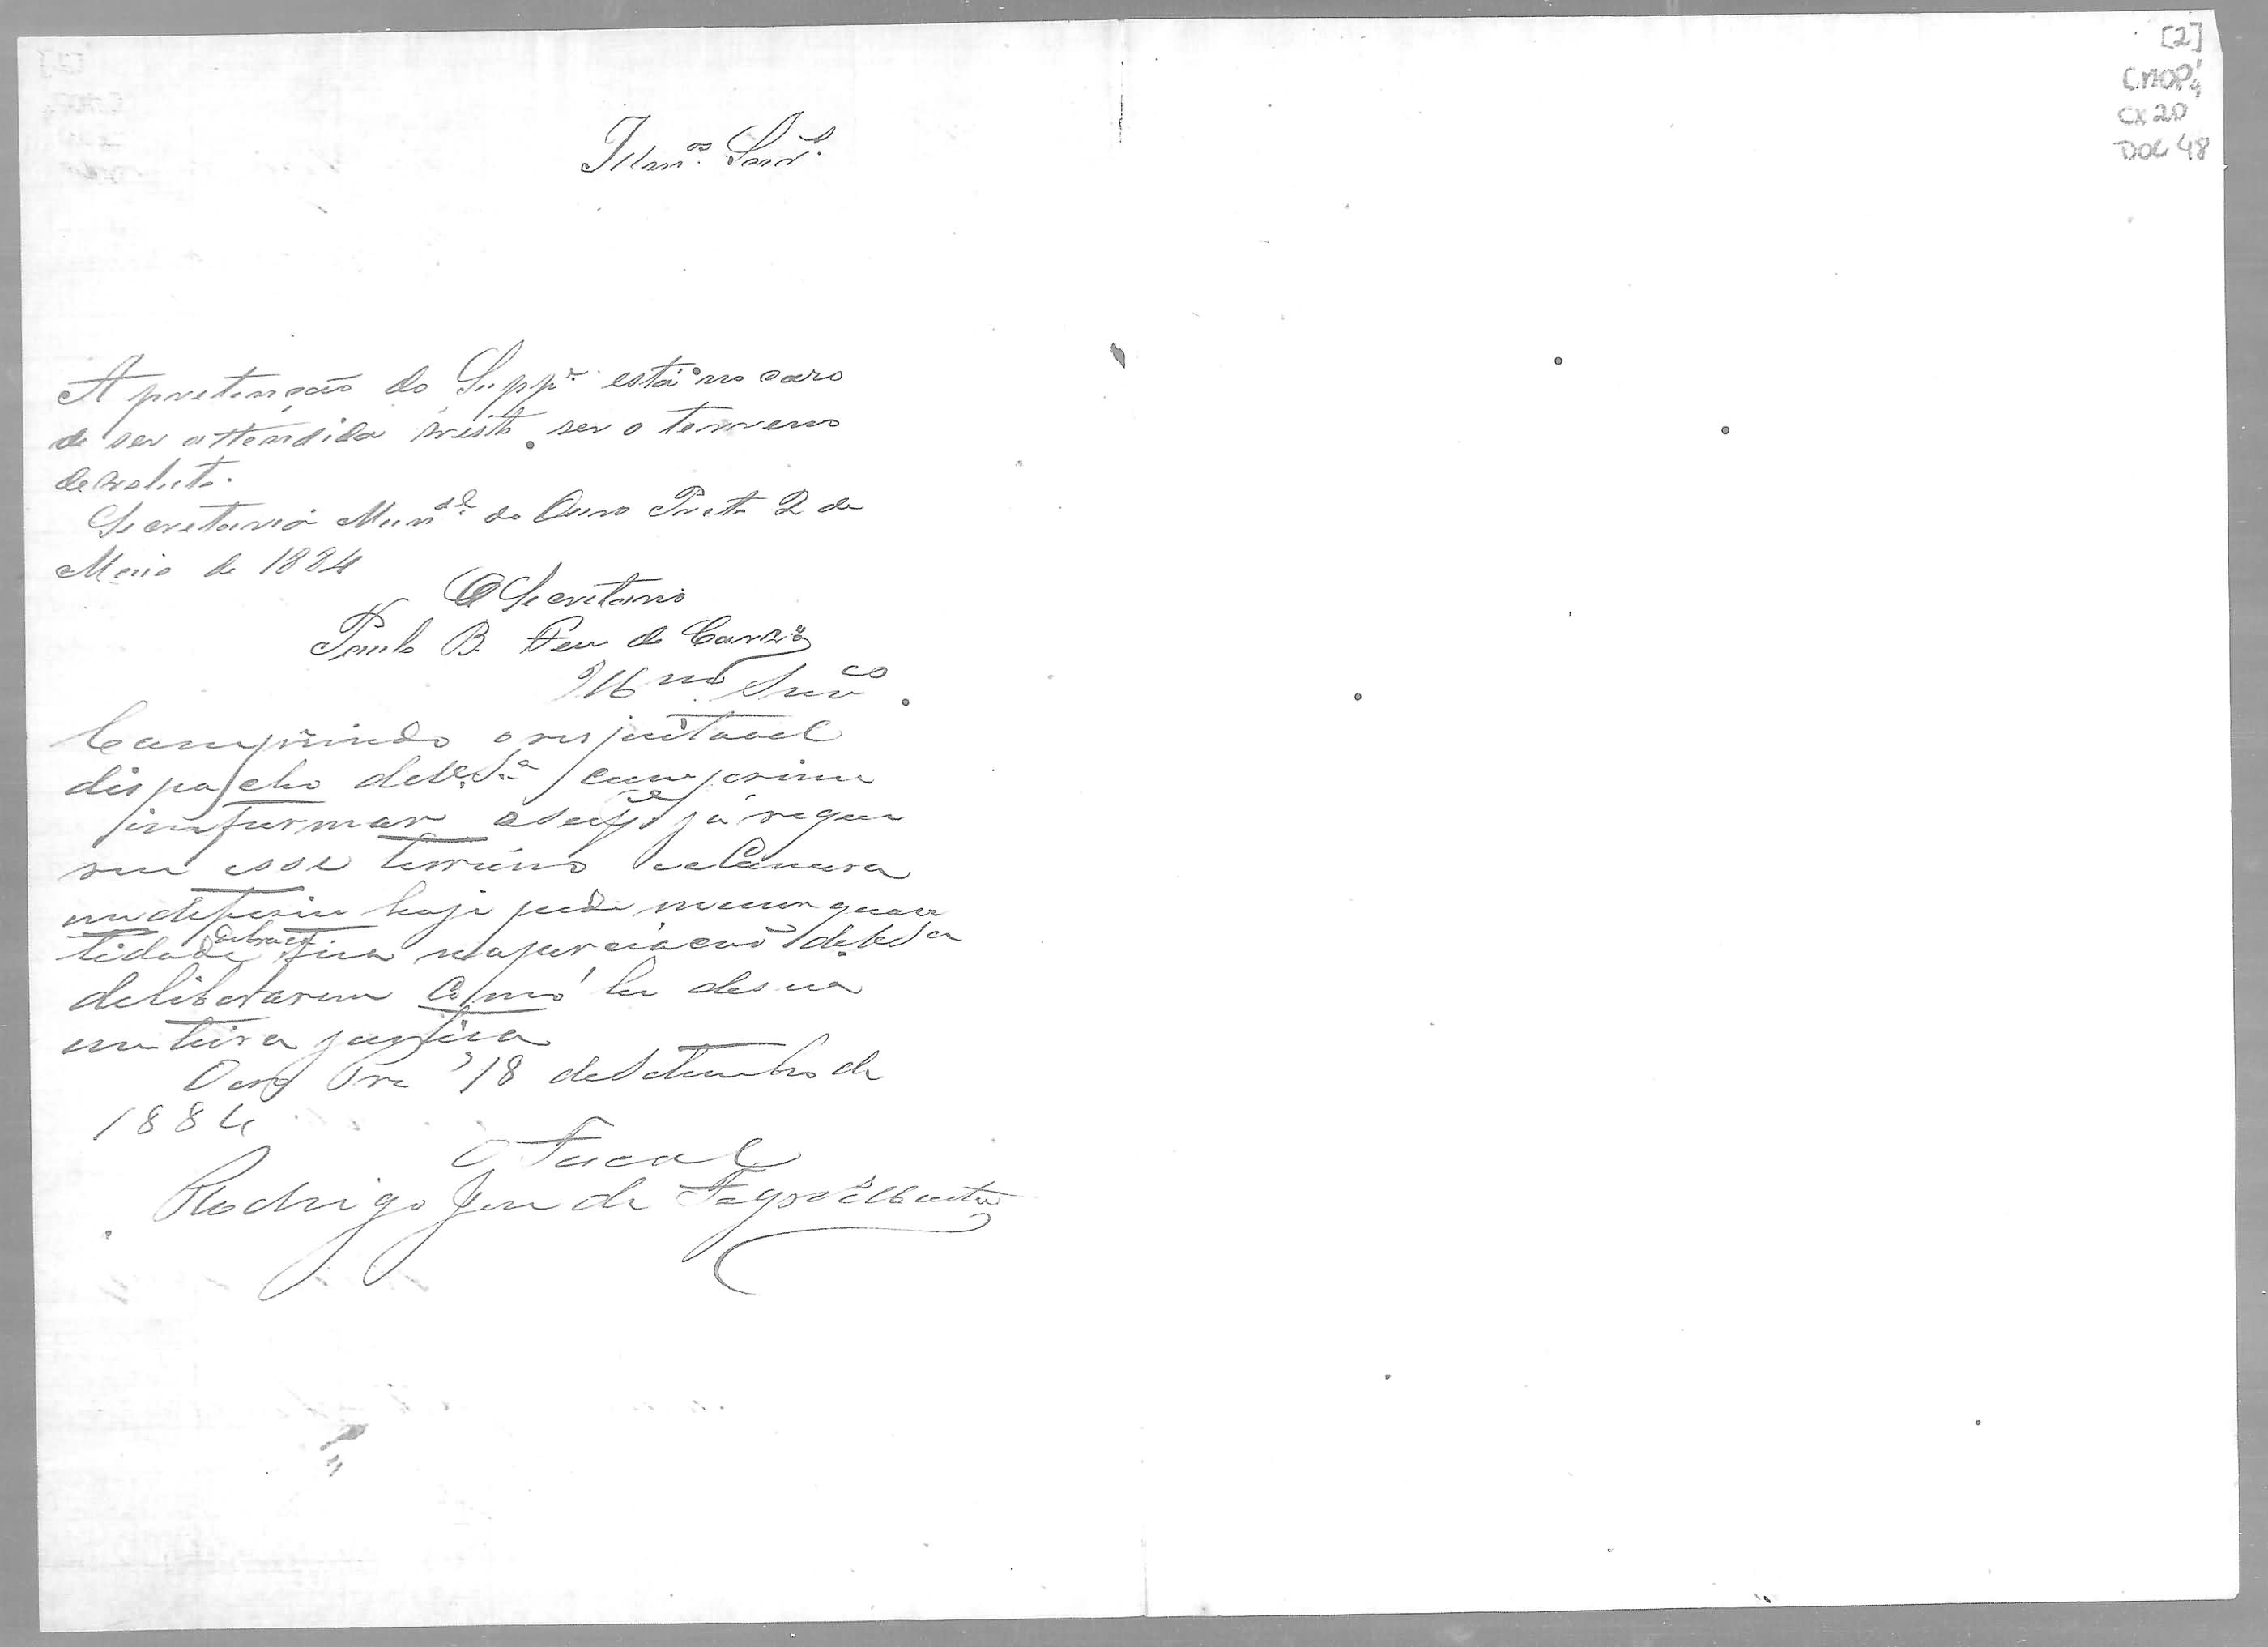 [2]
CMOP
CX 20
DOC 48
Illm.os Snr.s
A pretenção do Supp.e está no caso
de ser attendida visto ser o terreno
devoluto.
Secretaria Mun.al do Ouro Preto 2 de
Maio de 1884
O Secretario
Paulo B. de Carv.o
Illmo Snr.es
o respeitavel
dispacho de V.S.a cumprime
informar já reque
reu esse terreno a Camara
indeferiu hoje pede menor quan
tidade fica de V.S.a
deliberarem como he de sua
inteira justiça
Ouro Pre 18 de Setembro de
1884
O Fiscal
Rodrigo José de